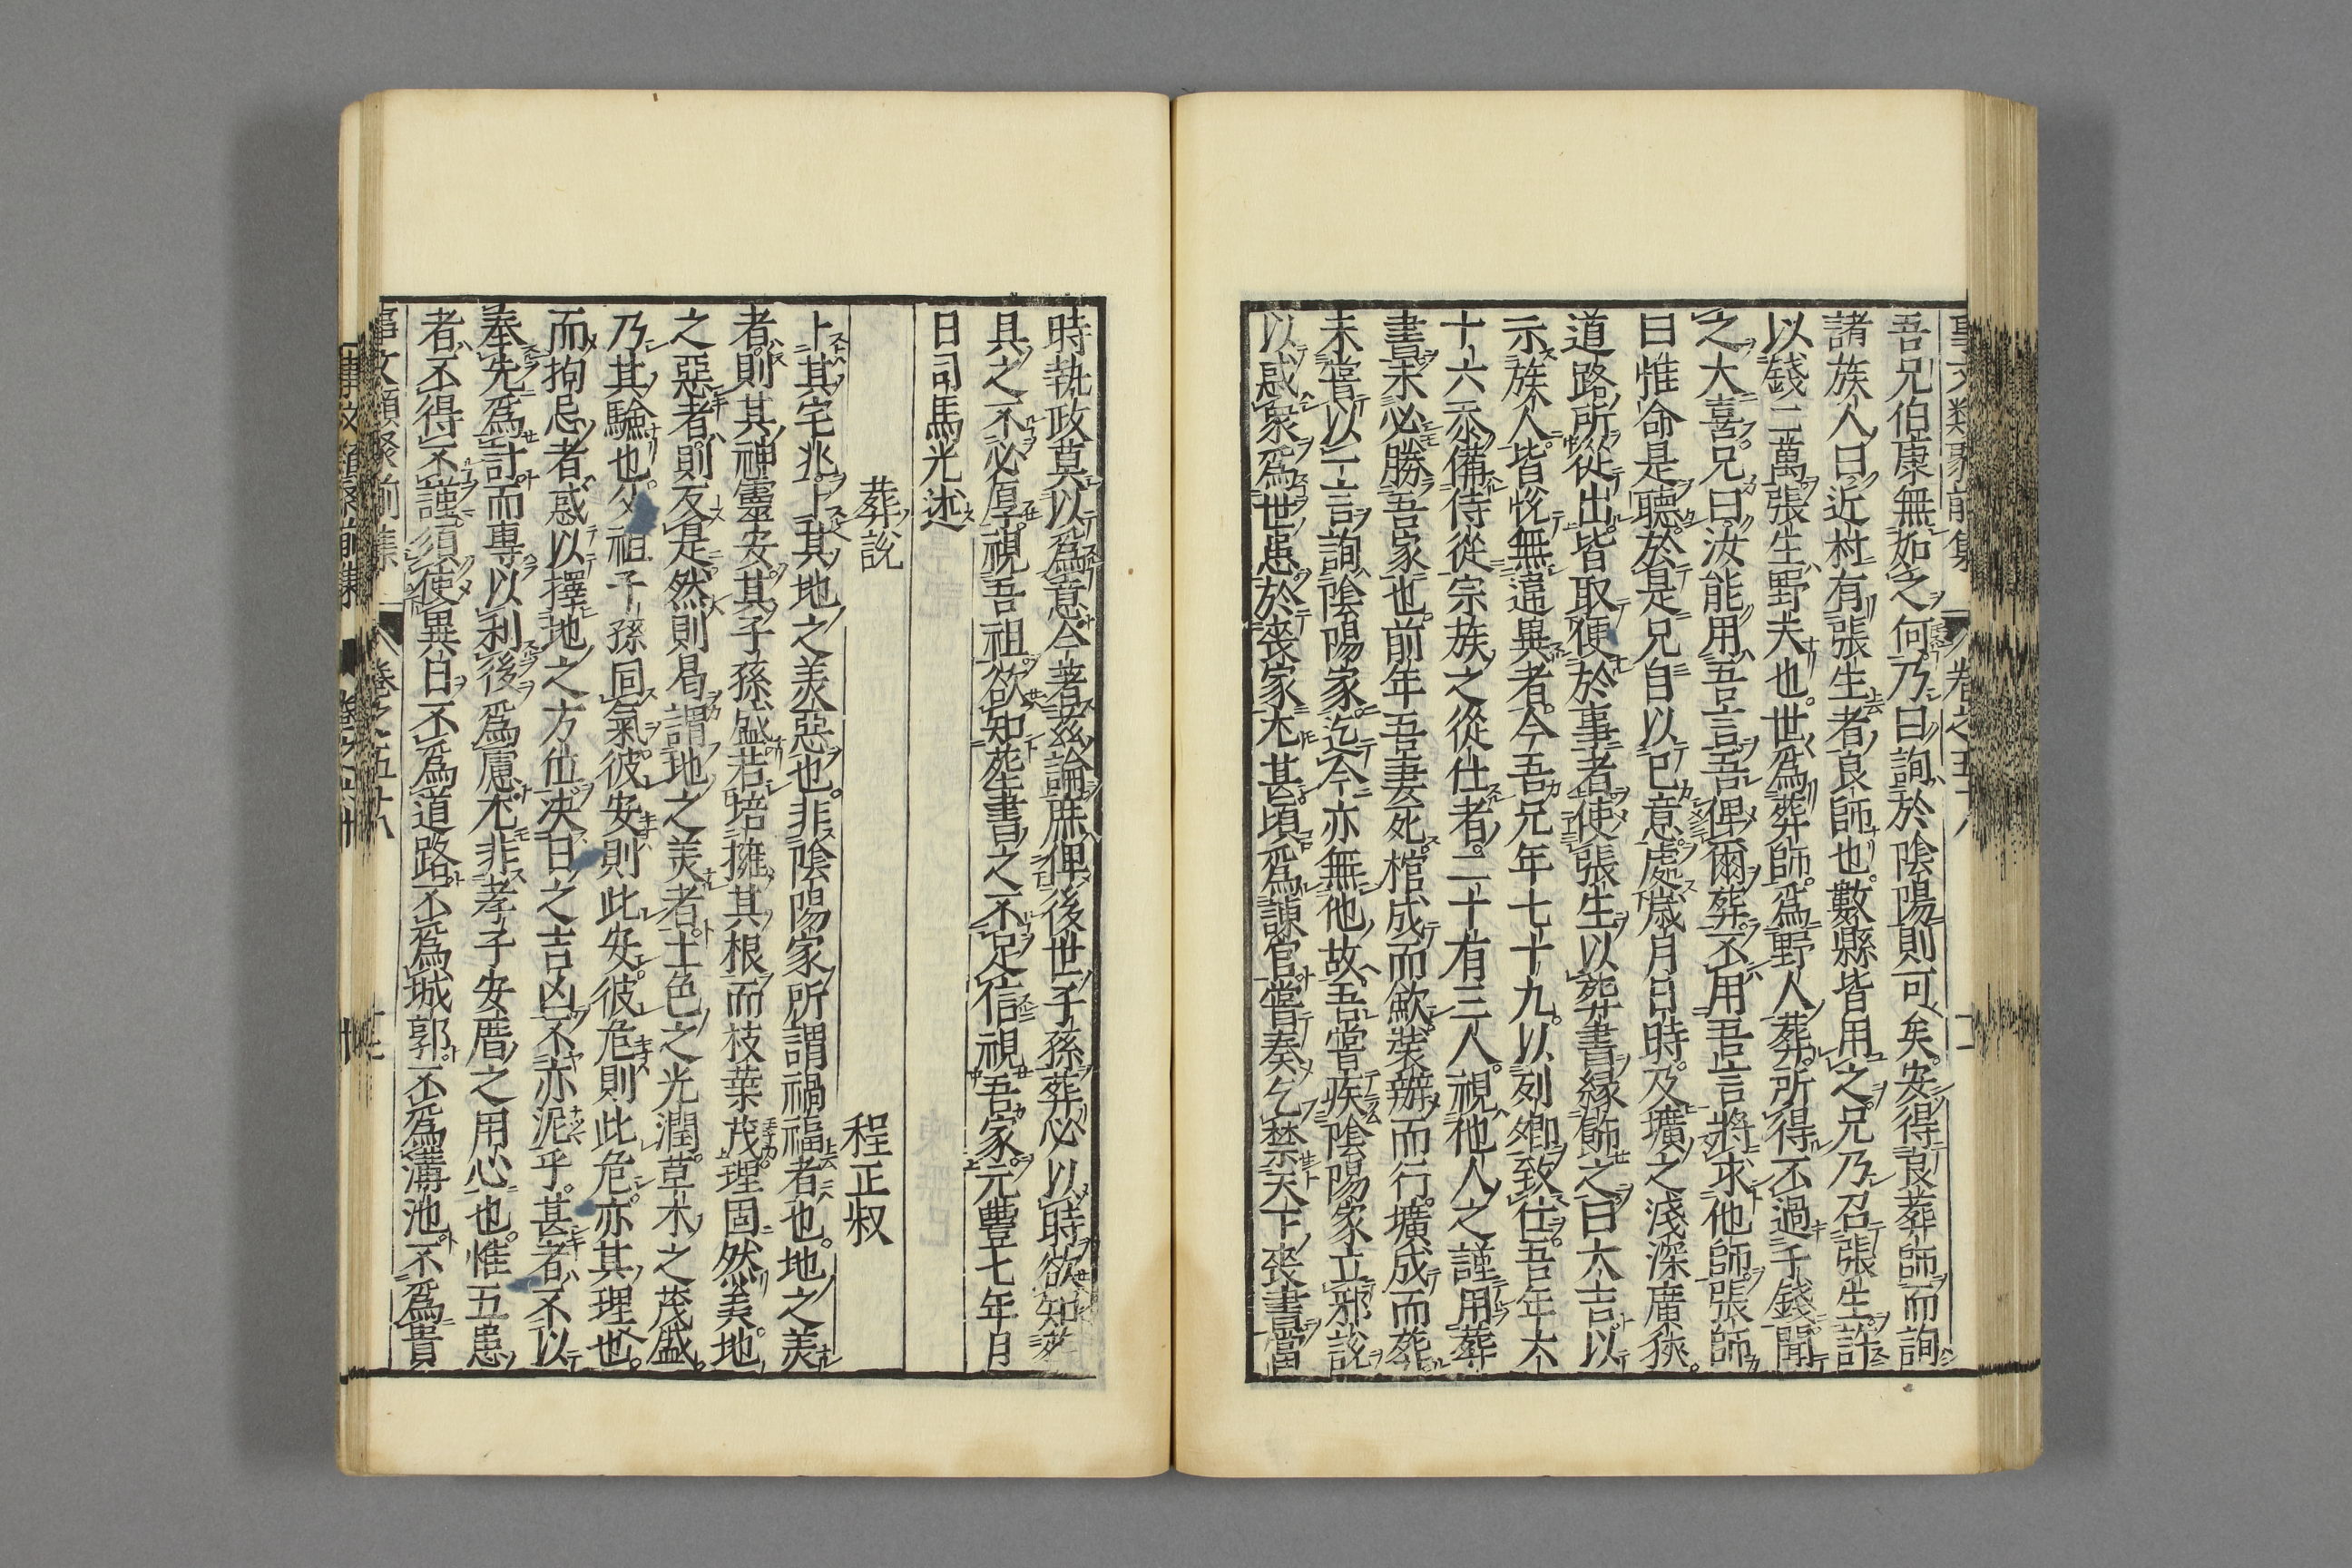 吾兄伯康無如之何乃曰詢於陰陽則可矣安得良葬師而詢
諸族人曰近村有張生者良師也數縣皆用之兄乃召張生許
以錢二萬張生野夫也世爲葬師爲野人葬所得不過千錢聞
之大喜兄曰汝能用吾言吾俾爾葬不用吾言將求他師張師
曰惟命是聽於是兄自以已意處歲月日時及壙之淺深廣狹
道路所從出皆取便於事者使張生以葬書緣飾之曰大吉以
示族人皆悅無違異者今吾兄年七十九以列卿致仕吾年六
十六忝備侍從宗族之從仕者二十有三人視他人之謹用葬
書未必勝吾家也前年吾妻死棺成而斂裝辦而行壙成而葬
未嘗以一言詢陰陽家迄今亦無他故吾嘗疾陰陽家立邪說
以惑衆爲世患於喪家尤甚頃爲諫官嘗奏乞禁天下喪書當
時執政莫以爲意今著茲論庶俾後世子孫葬必以時欲知葬
具之不必厚視吾祖欲知葬書之不足信視吾家元豐七年月
日司馬光述
葬說
程正叔
卜其宅兆卜其地之美惡也非陰陽家所謂禍福者也地之美
者則其神靈安其子孫盛若培擁其根而枝葉茂理固然矣地
之惡者則反是然則曷謂地之美者土色之光潤草木之茂盛
乃其驗也父祖子孫同氣彼安則此安彼危則此危亦其理也
而拘忌者惑以擇地之方位決日之吉凶不亦泥乎甚者不以
奉先爲計而專以利後爲慮尤非孝子安厝之用心也惟五患
者不得不謹須使異日不爲道路不爲城郭不爲溝池不爲貴
事文類聚前集 卷之五十八 十二